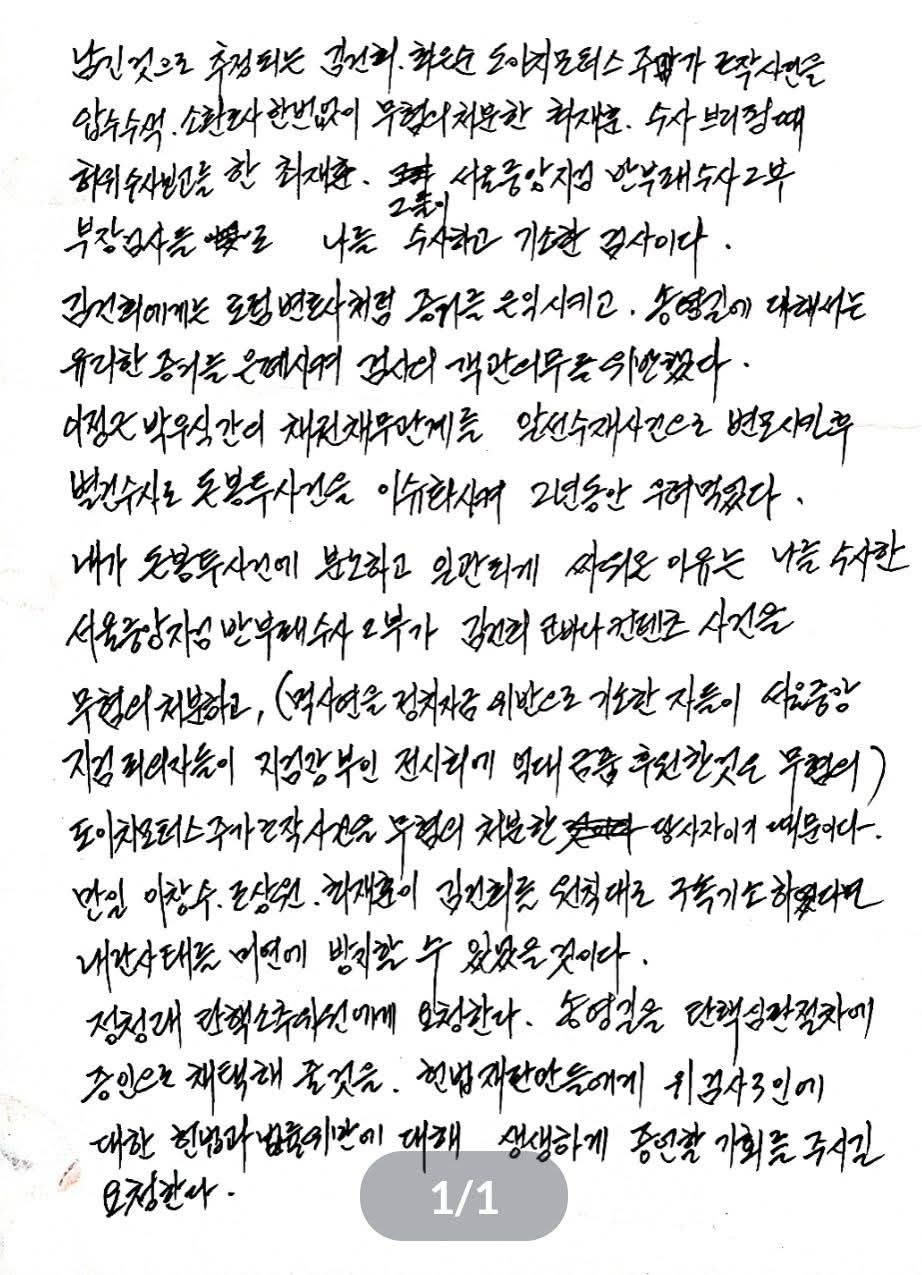 남긴것으로 추정되는 김건희.최은순 도이치모터스 주가 조작사건을
압수수색.소환조사 한번없이 무혐의처분한 최재훈. 수사 브리핑때
허위수사보고를 한 최재훈. 서울중앙지검 반부패수사 2부
그들이
부장검사들로 나를 수사하고 기소한 검사이다.
김건희에게는 로펌변호사처럼 증거를 은익시키고. 송영길에 대해서는
유리한 증거를 은폐시켜 검사의 객관의무를 위반했다.
이정근 박우식간의 채권채무관계를 알선수재사건으로 변모시킨후
별건수사로 돈봉투사건을 이슈화시켜 2년동안 우려먹었다.
내가 돈봉투사건에 분노하고 일관되게 싸워온 이유는 나를 수사한
서울중앙지검 반부패수사 2부가 김건희 코바나 컨텐츠 사건을
무혐의 처분하고, (먹사연을 정치자금 위반으로 기소한 자들이 서울중앙
지검 피의자들이 지검장 부인 전시회에 억대 금품 후원한것은 무혐의)
도이치모터스 주가조작사건을 무혐의 처분한 당사자이기 때문이다.
만일 이창수.조상원.최재훈이 김건희를 원칙대로 구속기소 하였다면
내란사태를 미연에 방지할 수 있었을 것이다.
정청래 탄핵소추위원에게 요청한다. 송영길을 탄핵심판절차에
증인으로 채택해 줄것을. 헌법재판관들에게 위 검사3인에
대한 헌법과 법률위반에 대해 생생하게 증언할 기회를 주시길
요청한다.
1/1